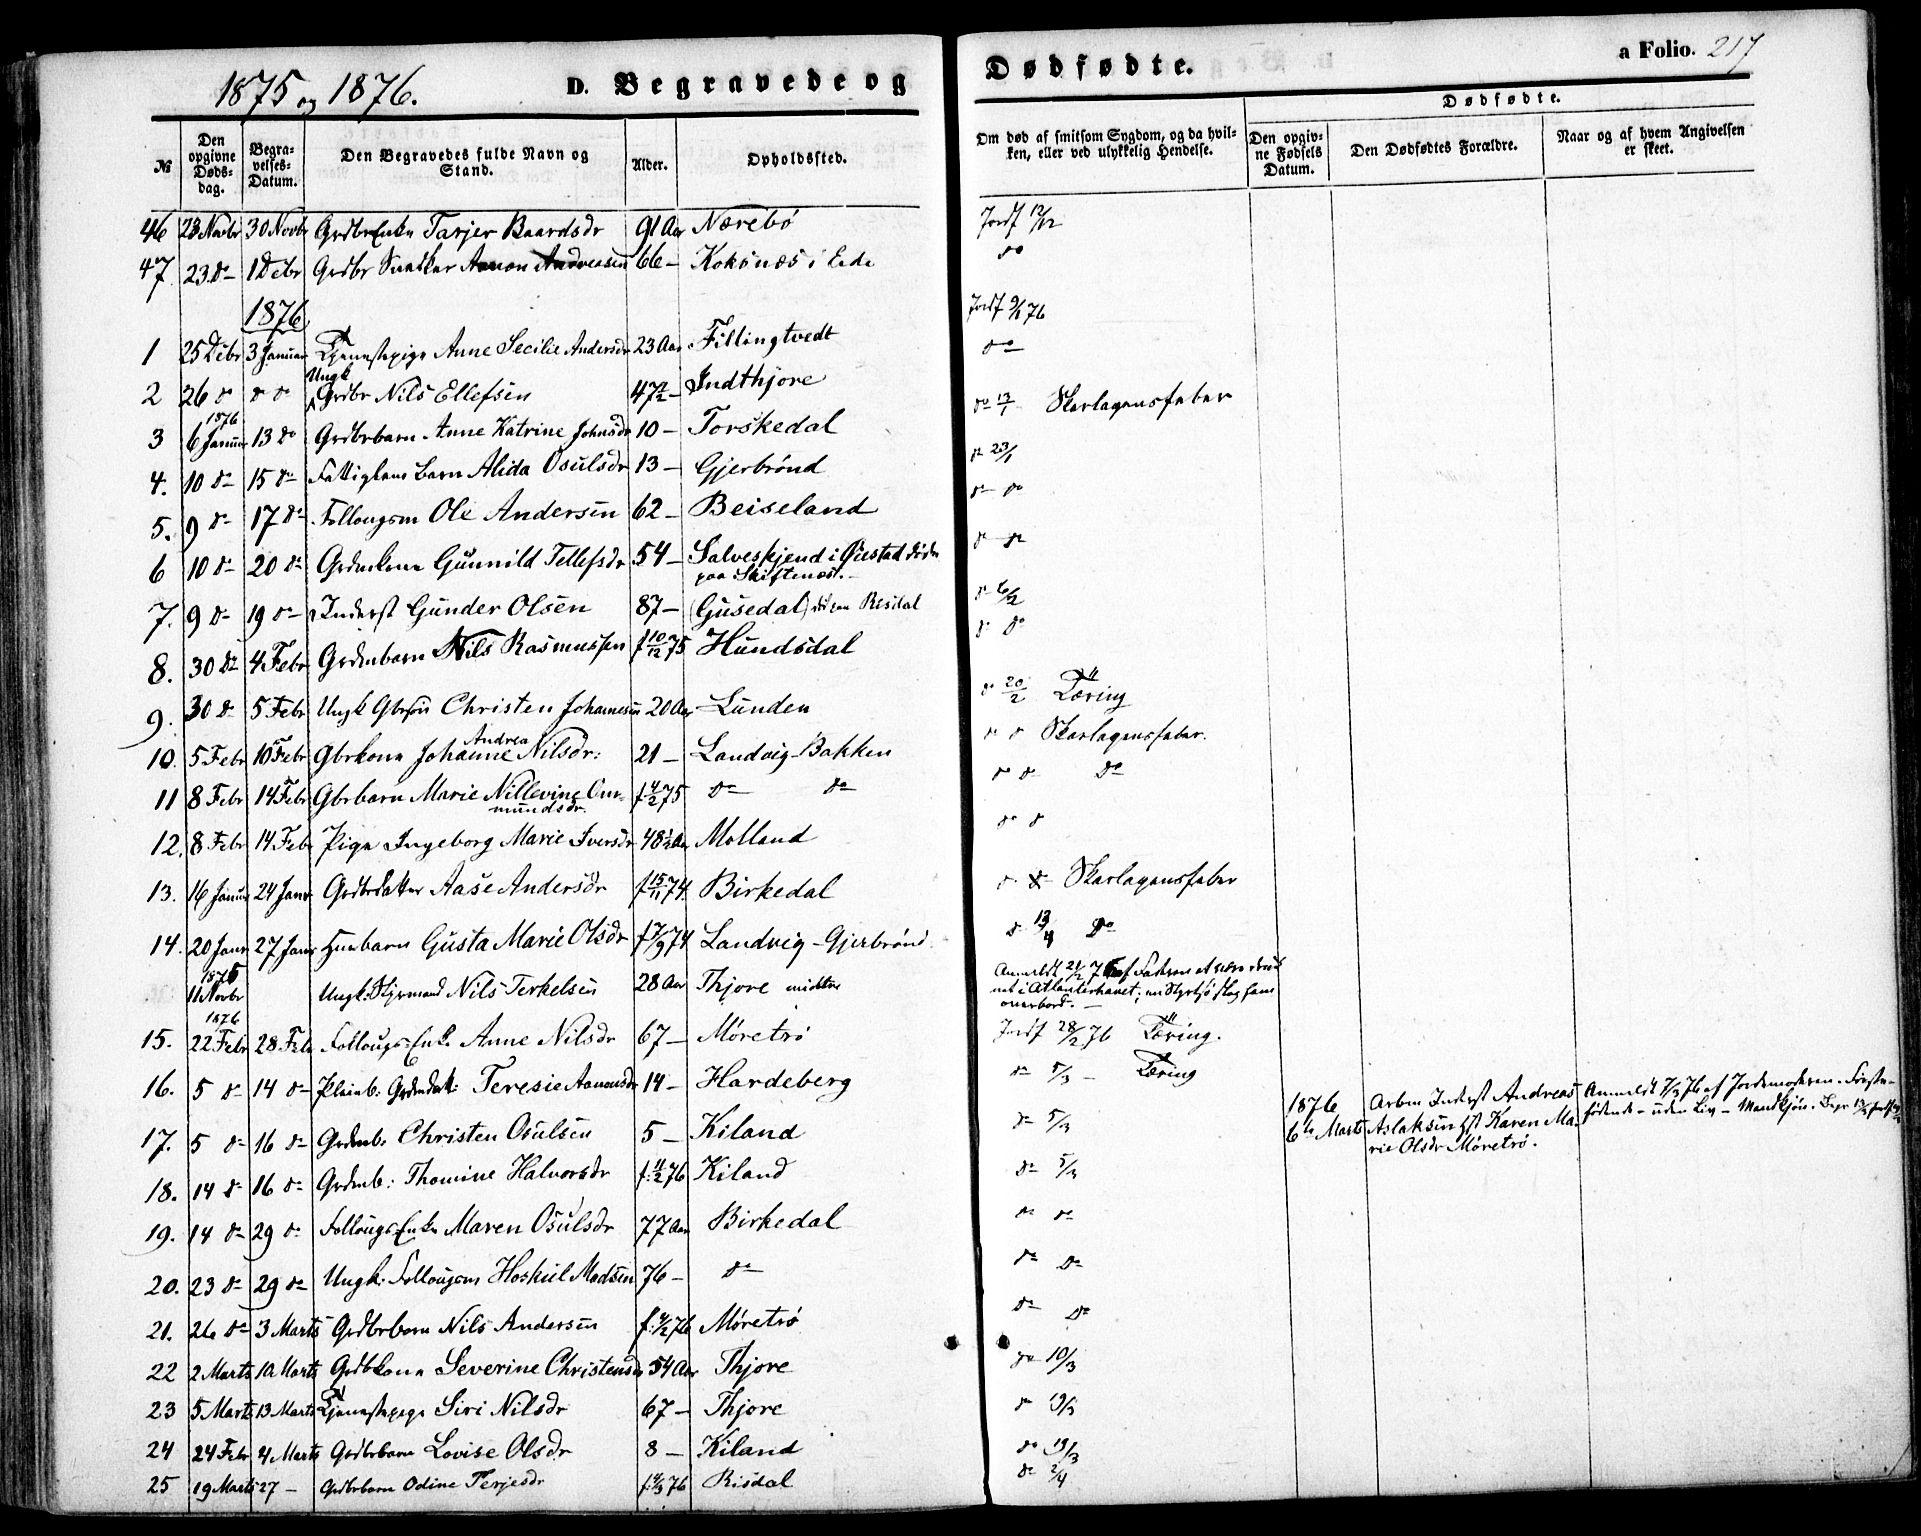 1875 og 1876.
D. Begravede og
Dødfødte.
a Folio. 217
№
Den opgivne Døds-dag.
Begra-velses-Datum.
Den Begravedes fulde Navn og Stand.
Alder.
Opholdssted.
Om død af smitsom Sygdom, og da hvil-ken, eller ved ulykkelig Hendelse.
Dødfødte.
Den opgiv-ne Fødsels Datum.
Den Dødfødtes Forældre.
Naar og af hvem Angivelsen er skeet.
46 23 Novbr 30 Novbr GrdbrEnke Tarjer Baardsdr 91 Aar Nærebø Jordf 12/12
47 23 do 1 Debr Grdbr Snedker Aanon Andreasen 66 – Koksnæs i Eide do
1876
1 25 Debr 3 Januar Tjenestepige Anne Secilie Andersdr 23 Aar Fillingtvedt Jordf 9/1 76
2 26 do do do Ungk Grdbr Nils Ellefsen 47 1/2 – Indthjore do
3 1876 6 Januar 13 do Grdbrbarn Anne Katrine Johnsdr 10 – Torskedal do 13/1 Skarlagensfeber
4. 10 do 15 do Fattiglems barn Alida Osulsdr 13 – Gjerbrønd do 23/1
5. 9 do 17 do Follougsm Ole Andersen 62 – Beiseland do do
6 10 do 20 do Grdmkone Gunnild Tellefsdr 54 – Salveskjend i Øiestad døde paa Skiftenæs. – do do
7. 9 do 19 do Inderst Gunder Olsen 87 – (Gusedal) Risdal do 6/2
8. 30 do 4 Febr Grdmbarn Nils Rasmussen f 10/12 75 Hundsdal do do
9. 30 do 5 Febr Ungk Gbrsøn Christen Johannesen 20 Aar Lunden do 20/2 Tæring
10. 5 Febr 10 Febr Gbrkone Johanne Andrea Nilsdr: 21 – Landvig-Bakken do do Skarlagensfeber.
11 8 Febr 14 Febr Gbrbarn Marie Nillevine Gun-mundsdr. f 4/2 75 do do do do do
12. 8 Febr 14 Febr Pige Ingeborg Marie Iversdr 48 1/2 Aar Molland do do
13. 16 Januar 24 Janr Grdbrdatter Aase Andersdr f 15/11 74. Birkedal do do Skarlagensfeber
14. 20 Janr 27 Janr Husbarn Gusta Marie Olsdr f 7/9 74 Landvig – Gjerbrønd do 13/4 do
1875 11 Novbr Ungk: Styrmand Nils Terkelsen 28 Aar Thjore midtre Anmeldt 21/2 76 af Faderen at være druk-net i Atlanterhavet; en Styrtsjø slog ham overbord. –
15. 1876 22 Febr 28 Feb Follougs-Enke Anne Nilsdr 67 – Møretrø Jordf 28/2 76 Tæring.
16. 5 do 14 do Pleieb: Grdmdat: Teresie Aanonsdr 14 – Hardeberg do 5/3 – Tæring
1876 6te Marts Arben Inderst Andreas Aslaksen Hst Karen Ma-rie Olsdr Møretrø. Anmeldt 7/3 76 af Jordemoderen. Første-fødende – uden Liv – Mandkjøn.
17. 5 do 16 do Grdmb. Christen Osulsen 5 – Kiland do 5/3
18. 14 do 16 do Grdmb: Thomine Halvorsdr f: 11/2 76 Kiland do 5/3
19. 14 do 29 do Follougs-Enke Maren Osulsdr 77 Aar Birkedal do do
20. 23 do 29 do Ungk: Follougsm Hoskul Madsen 76 – do do do
21. 26 do 3 Marts Grdbrbarn Nils Andersen f: 4/2 76 Møretrø do do
22 2 Marts 10 Marts Grdbkone Severine Christensdr 54 Aar Thjore do 10/3
23 5 Marts 13 Marts Tjenestepige Siri Nilsdr 67 – Thjore do 19/3
24 24 Febr 4 Marts Grdbrbarn Lovise Olsdr 8 – Kiland do 19/3
25 19 Marts 27 – Grdbrbarn Odine Terjesdr f: 4/3 76 Risdal do 2/4